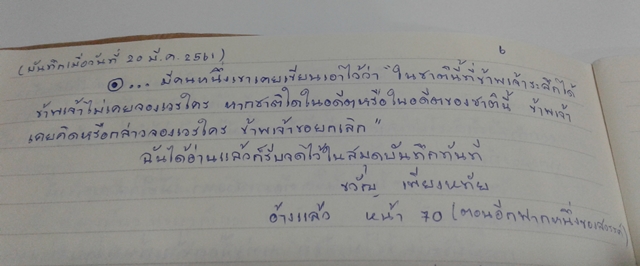 6
(บันทึกเมื่อวันที่ 20 มี.ค. 2561)
๏... มีคนหนึ่งเขาเคยเขียนเอาไว้ว่า "ในชาตินี้ที่ข้าพเจ้าระลึกได้
ข้าพเจ้าไม่เคยจองเวรใคร หากชาติใดในอดีตหรือในอดีตของชาตินี้ ข้าพเจ้า
เคยคิดหรือกล่าวจองเวรใคร ข้าพเจ้าขอยกเลิก"
ฉันได้อ่านแล้วก็รีบจดไว้ในสมุดบันทึกทันที
ขวัญ เพียงหทัย
อ้างแล้ว หน้า 70 (ตอนอีกฟากหนึ่งของ